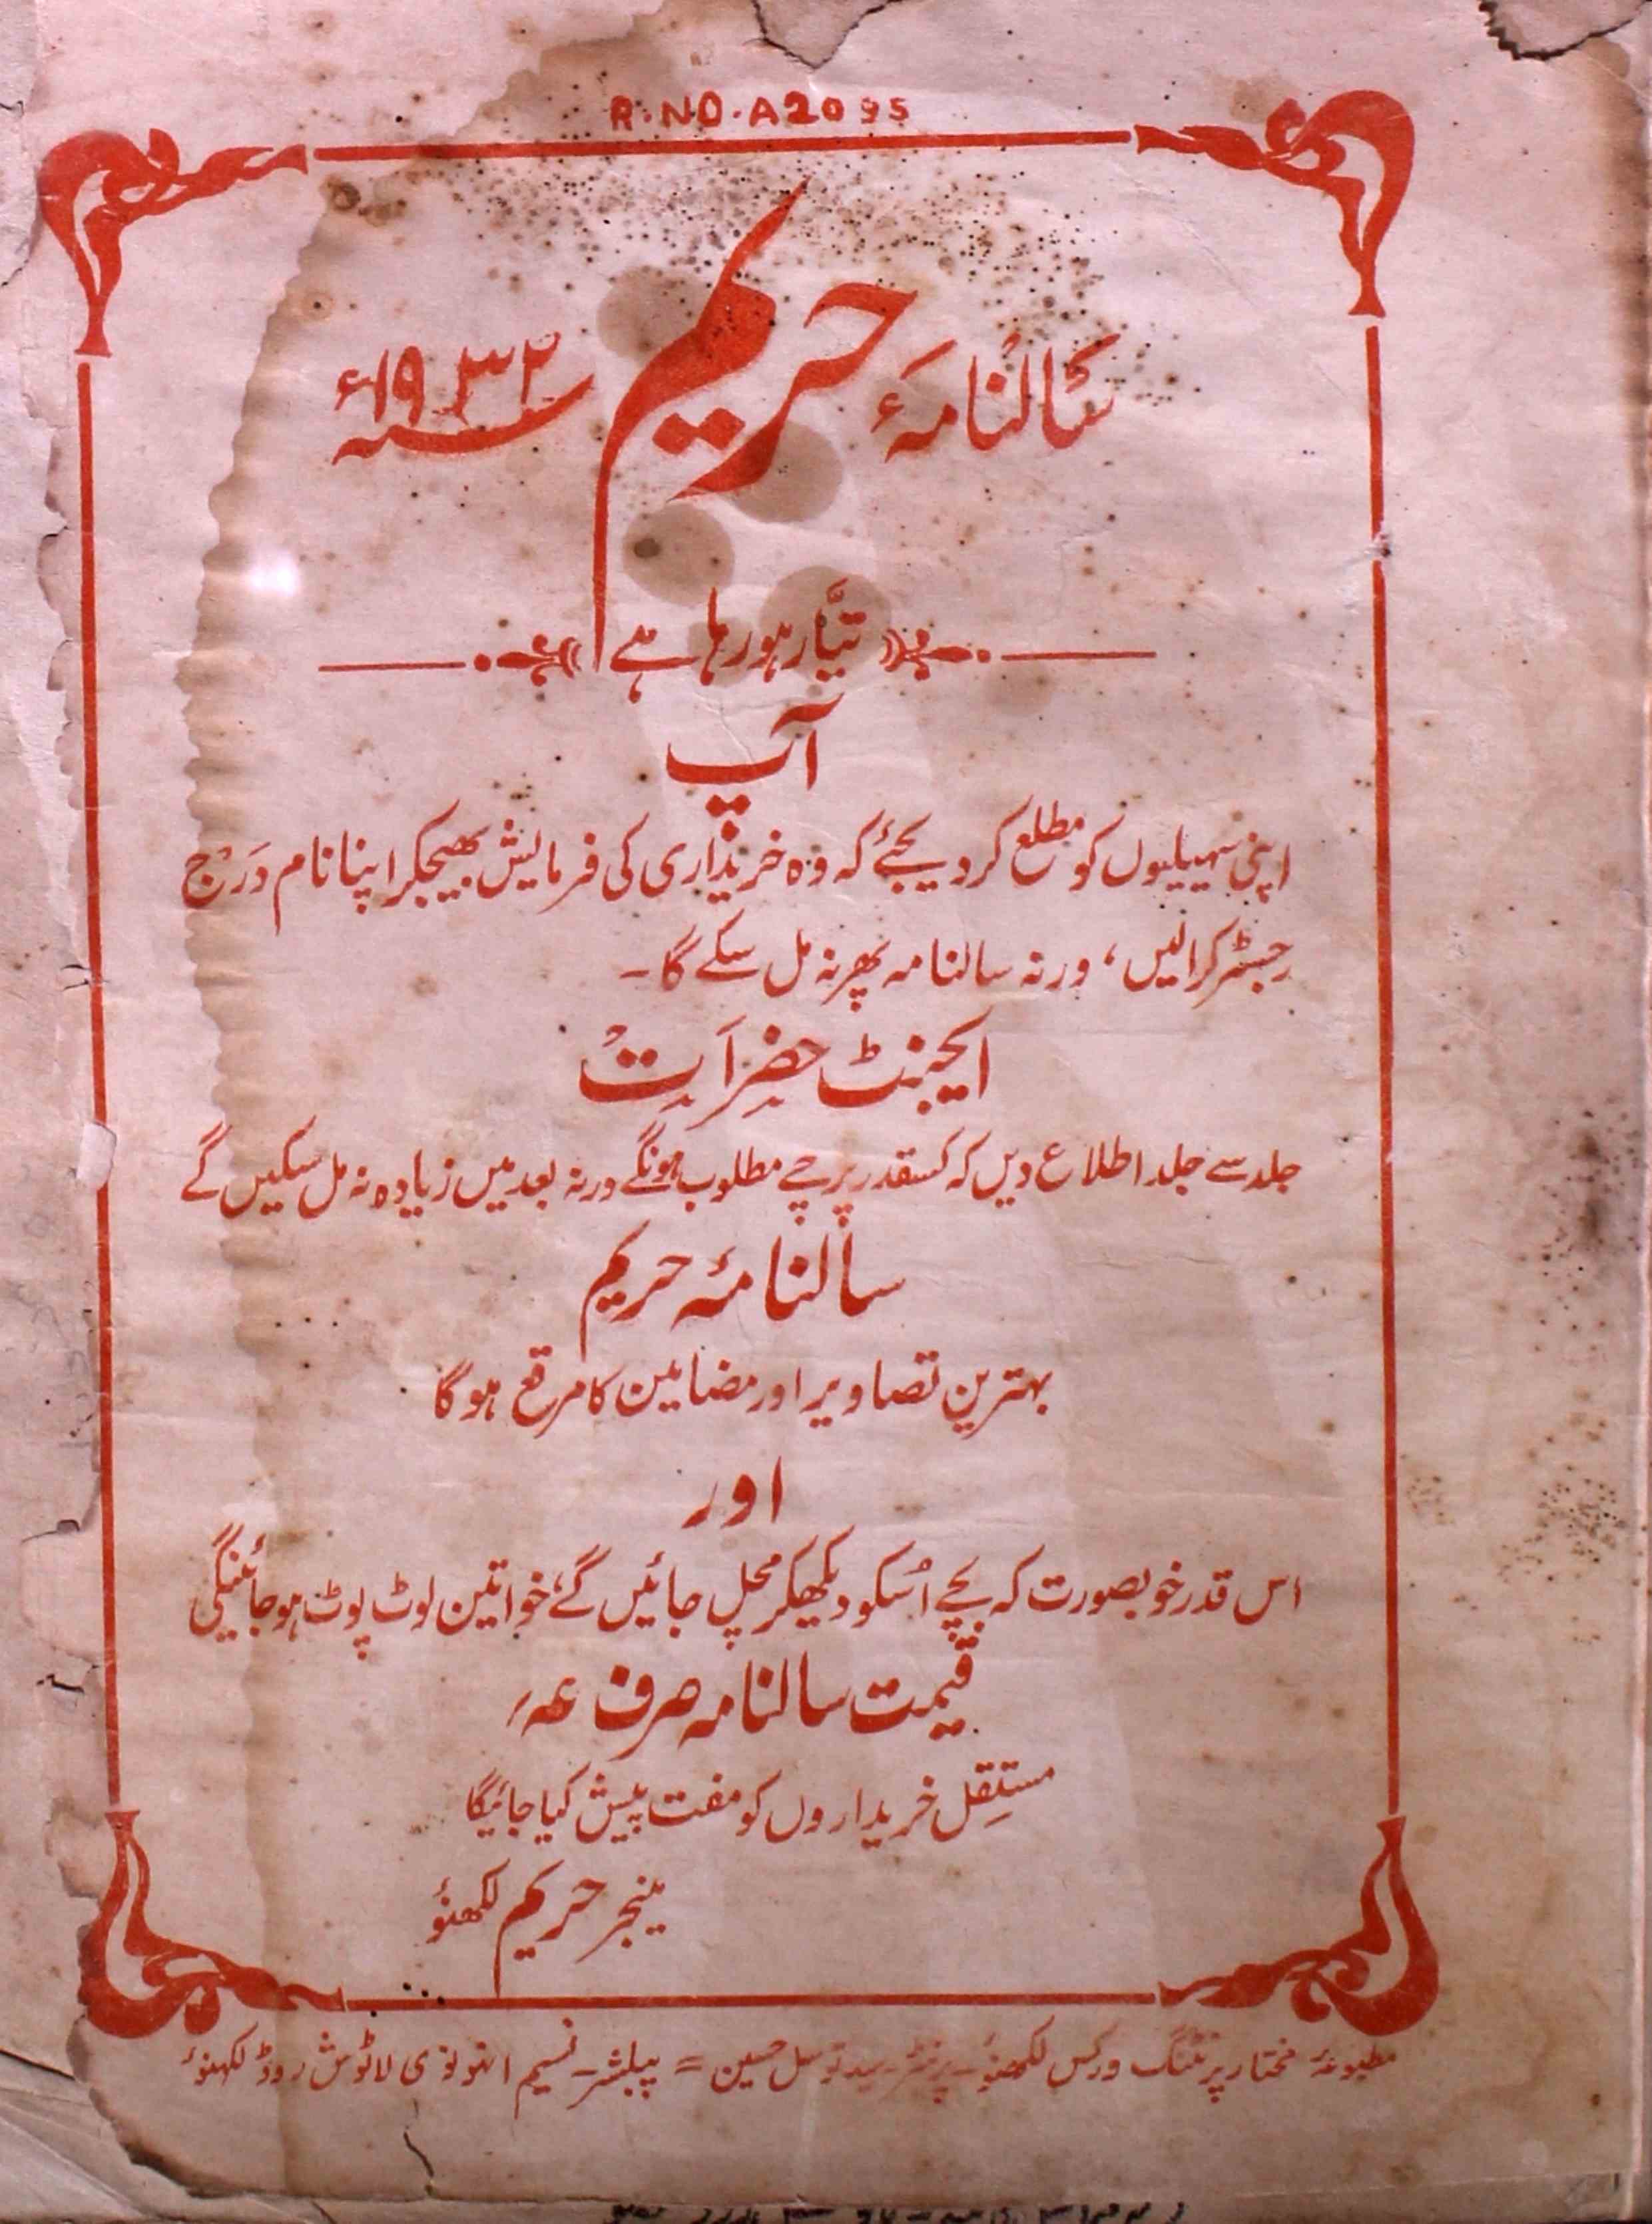 R.NO.A2095
سالنامۂ حریم سنہ ۱۹۳۲ء
تیّار ہو رہا ہے
آپ
اپنی سہیلیوں کو مطلع کر دیجئے کہ وہ خریداری کی فرمایش بھیجکر اپنا نام دَرْج
رجسٹر کرالیں، ورنہ سالنامہ پھر نہ مل سکے گا۔
ایجنٹ حضرات
جلد سے جلد اطلاع دیں کہ کسقدر پرچے مطلوب ہونگے ورنہ بعد میں زیادہ نہ مل سکیں گے
سالنامۂ حریم
بہترین تصاویر اور مضامین کا مرقع ہوگا
اور
اس قدر خوبصورت کہ بچے اُسکو دیکھکر مچل جائیں گے، خواتین لوٹ پوٹ ہو جائینگی
قیمت سالنامہ صرف عہ؍
مستقِل خریداروں کو مفت پیش کیا جائیگا
مینجر حریم لکھنؤ
مطبوعۂ مختار پرنٹنگ ورکس لکھنؤ۔ پرنٹر۔ سید توسل حسین = پبلشر۔ نسیم انہونوی لاٹوش روڈ لکھنؤ